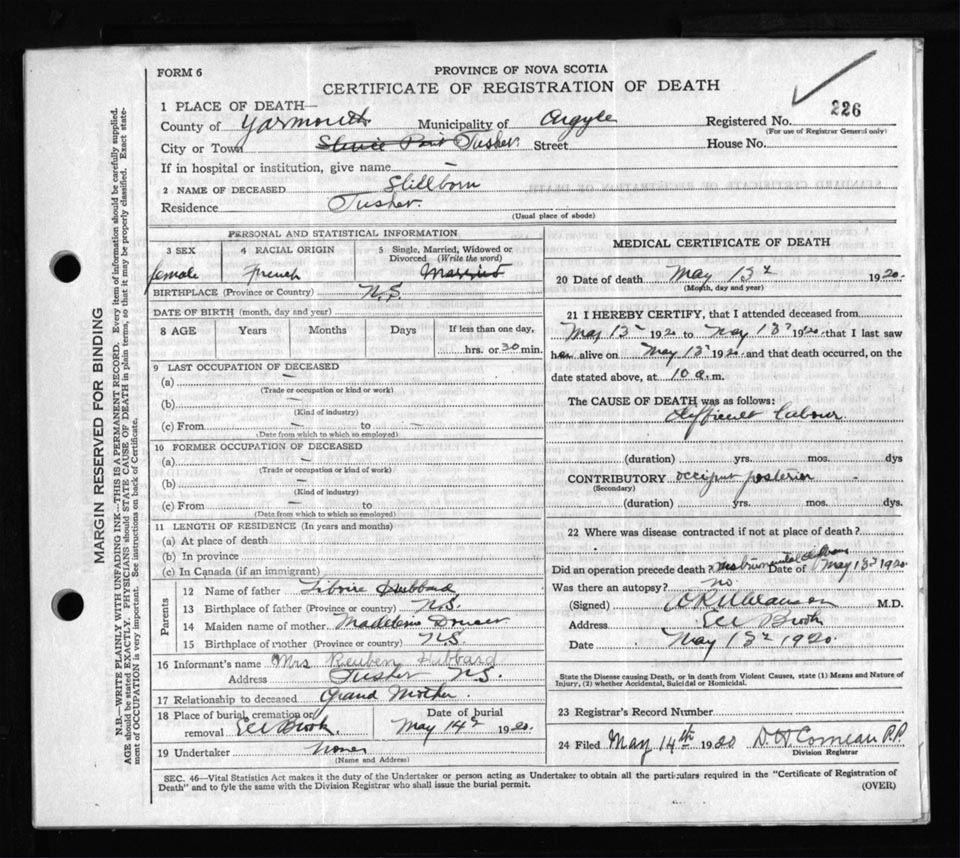 FORM 6
PROVINCE OF NOVA SCOTIA
CERTIFICATE OF REGISTRATION OF DEATH
226
1 PLACE OF DEATH—
County of Yarmouth Municipality of Argyle Registered No.
(For use of Registrar General only)
City or Town Sluice Point Tusket Street House No.
If in hospital or institution, give name –
2 NAME OF DECEASED Stillborn
Residence Tusket.
(Usual place of abode)
PERSONAL AND STATISTICAL INFORMATION
3 SEX 4 RACIAL ORIGIN 5 Single, Married, Widowed or Divorced (Write the word)
female French
BIRTHPLACE (Province or Country) N.S.
DATE OF BIRTH (month, day and year)
8 AGE Years Months Days If less than one day,
hrs. or 30 min.
9 LAST OCCUPATION OF DECEASED
(a) –
(Trade or occupation or kind or work)
(b) –
(Kind of industry)
(c) From – to –
(Date from which to which so employed)
10 FORMER OCCUPATION OF DECEASED
(a) –
(Trade or occupation or kind of work)
(b) –
(Kind of industry)
(c) From – to
(Date from which to which so employed)
11 LENGTH OF RESIDENCE (In years and months)
(a) At place of death
(b) In province
(c) In Canada (if an immigrant)
Parents
12 Name of father Hubbard
13 Birthplace of father (Province or country) N.S.
14 Maiden name of mother Madeleine
15 Birthplace of mother (Province or country) N.S.
16 Informant's name Mrs Reuben Hubbard
Address Tusket N.S.
17 Relationship to deceased Grand Mother.
18 Place of burial, cremation or removal Eel Brook Date of burial May 14th 1920.
19 Undertaker
(Name and Address)
MEDICAL CERTIFICATE OF DEATH
20 Date of death May 13th 1920.
(Month, day and year)
21 I HEREBY CERTIFY, that I attended deceased from
May 13th 1920 to May 13th 1920 that I last saw
her alive on May 13th 1920 and that death occurred, on the
date stated above, at 10 a.m.
The CAUSE OF DEATH was as follows:
difficult labour
(duration) yrs. mos. dys
CONTRIBUTORY occiput posterior
(Secondary)
(duration) yrs. mos. dys.
22 Where was disease contracted if not at place of death?
Did an operation precede death? Instrumental delivery Date of May 13th 1920
Was there an autopsy? no.
(Signed) M.D.
Address Eel Brook
Date May 13th 1920.
State the Disease causing Death, or in death from Violent Causes, state (1) Means and Nature of
Injury, (2) whether Accidental, Suicidal or Homicidal.
23 Registrar's Record Number
24 Filed May 14th 1920 D. H Comeau P.P.
Division Registrar
SEC. 46—Vital Statistics Act makes it the duty of the Undertaker or person acting as Undertaker to obtain all the particulars required in the "Certificate of Registration of
Death" and to fyle the same with the Division Registrar who shall issue the burial permit.
(OVER)
MARGIN RESERVED FOR BINDING
N.B.—WRITE PLAINLY WITH UNFADING INK—THIS IS A PERMANENT RECORD. Every item of information should be carefully supplied.
AGE should be stated EXACTLY. PHYSICIANS should STATE CAUSE OF DEATH in plain terms, so that it may be properly classified. Exact statement of OCCUPATION is very important. See instructions on back of Certificate.